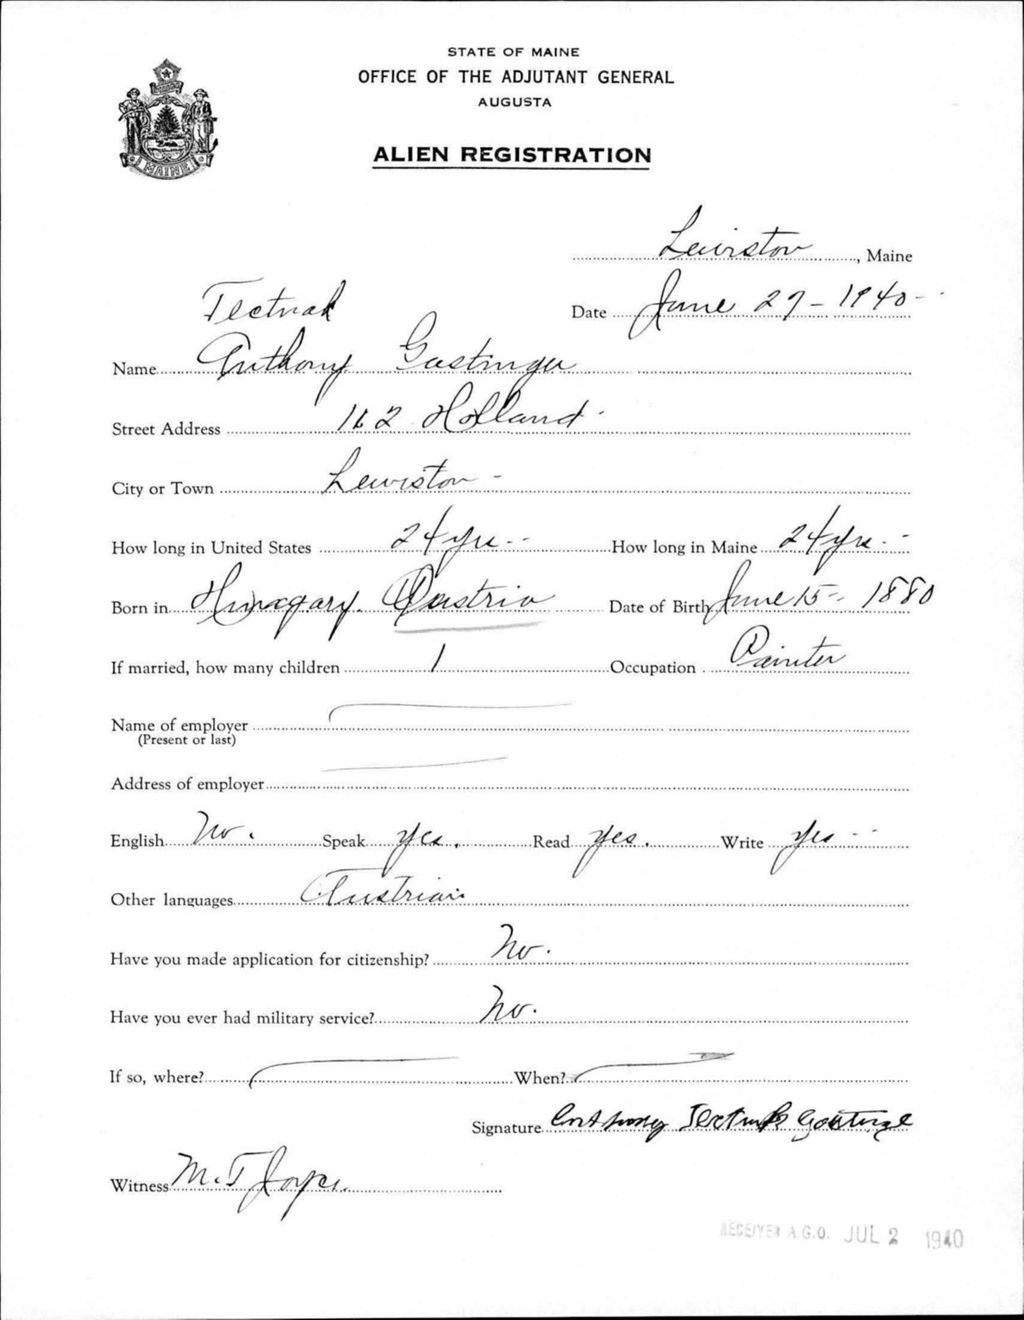 STATE OF MAINE
OFFICE OF THE ADJUTANT GENERAL
AUGUSTA
MAINE
ALIEN REGISTRATION
Lewiston, Maine
Date June 27 - 1940 -
Tectnak
Name Anthony Gastinger
Street Address 162 Holland -
City or Town Lewiston -
How long in United States 24 yrs - - How long in Maine 24 yrs -
Born in Hungary. Austria Date of Birth June 15 -, 1880
If married, how many children 1 Occupation Painter
Name of employer
(Present or last)
Address of employer
English No. Speak Yes. Read Yes. Write Yes - -
Other languages Austrian
Have you made application for citizenship? No.
Have you ever had military service? No.
If so, where? When?
Signature Anthony Tectnak
Witness M. T. Joyce
RECEIVED A.G.O. JUL 2 1940